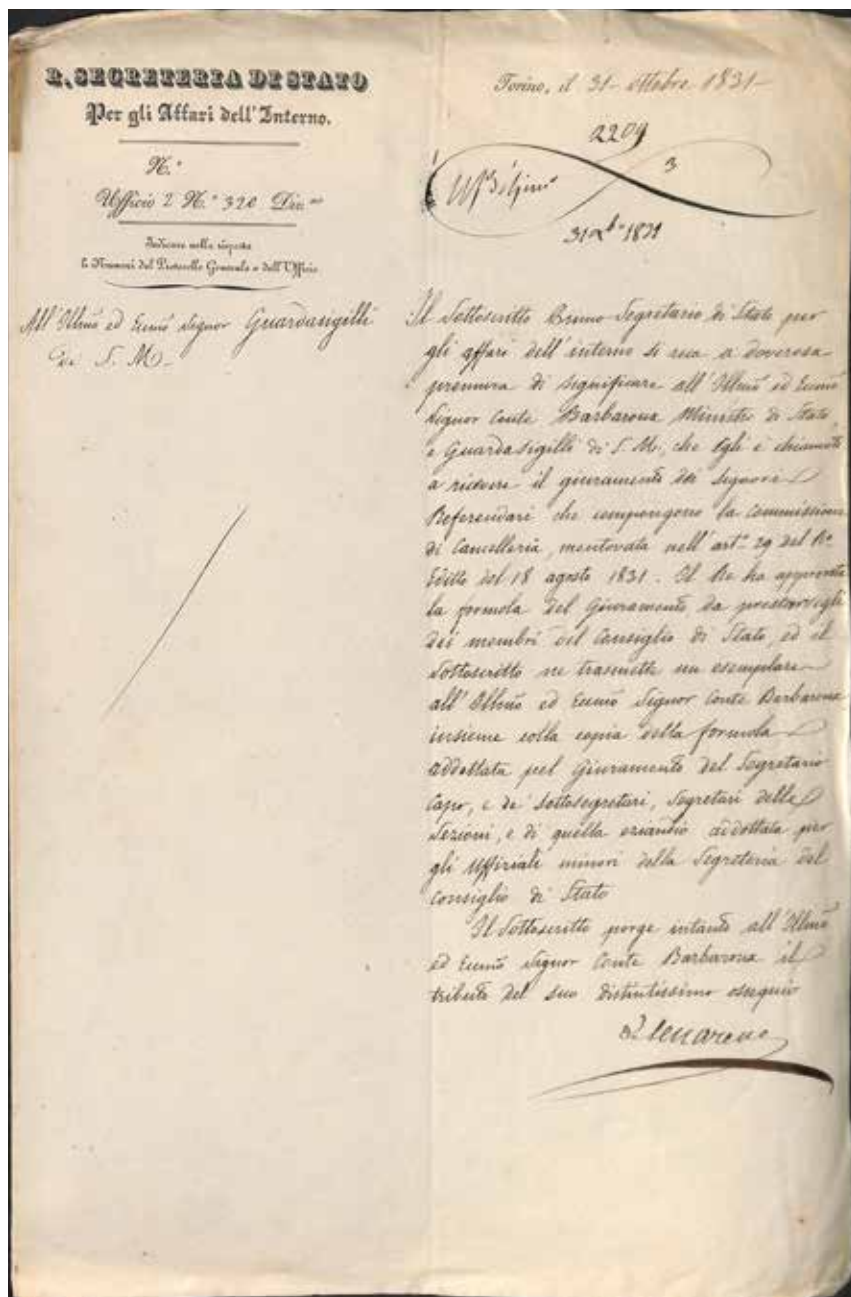 R. SEGRETERIA DI STATO
Per gli Affari dell'Interno.
N.°
Ufficio 2 N.° 320 Div.ne
Indicare nella risposta
li Numeri del Protocollo Generale e dell'Ufficio
All'Illmo ed Eccmo Signor Guardasigilli
di S. M.
Torino, il 31 ottobre 1831
2209
3
31 Xb 1831
Il Sottoscritto Primo Segretario di Stato per
gli affari dell'interno si reca a doverosa
premura di significare all'Illmo ed Eccmo
Signor Conte Barbaroux Ministro di Stato
e Guardasigilli di S. M., che Egli è chiamato
a ricevere il giuramento dei Signori
Referendari che compongono la Commissione
di Cancelleria, mentovata nell'art. 29 del Ro.
Editto del 18 agosto 1831. Il Re ha approvata
la formola del Giuramento da prestarsigli
dei membri del Consiglio di Stato, ed il
Sottoscritto ne trasmette un esemplare
all'Illmo ed Eccmo Signor Conte Barbaroux
insieme colla copia della formola
addottata pel Giuramento del Segretario
Capo, e de' Sottosegretari, Segretari delle
Sezioni, e di quella eziandio addottata per
gli Uffiziali minori della Segreteria del
Consiglio di Stato
Il Sottoscritto porge intanto all'Illmo
ed Eccmo Signor Conte Barbaroux il
tributo del suo distintissimo ossequio